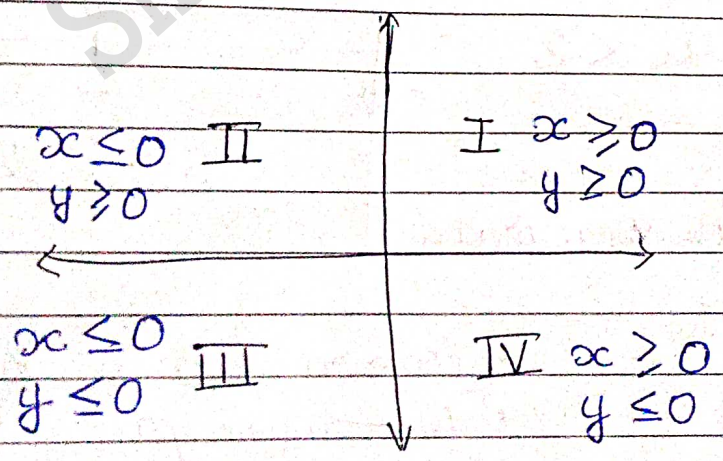 x ≤ 0 II
y ≥ 0
I x ≥ 0
y ≥ 0
x ≤ 0
y ≤ 0 III
IV x ≥ 0
y ≤ 0